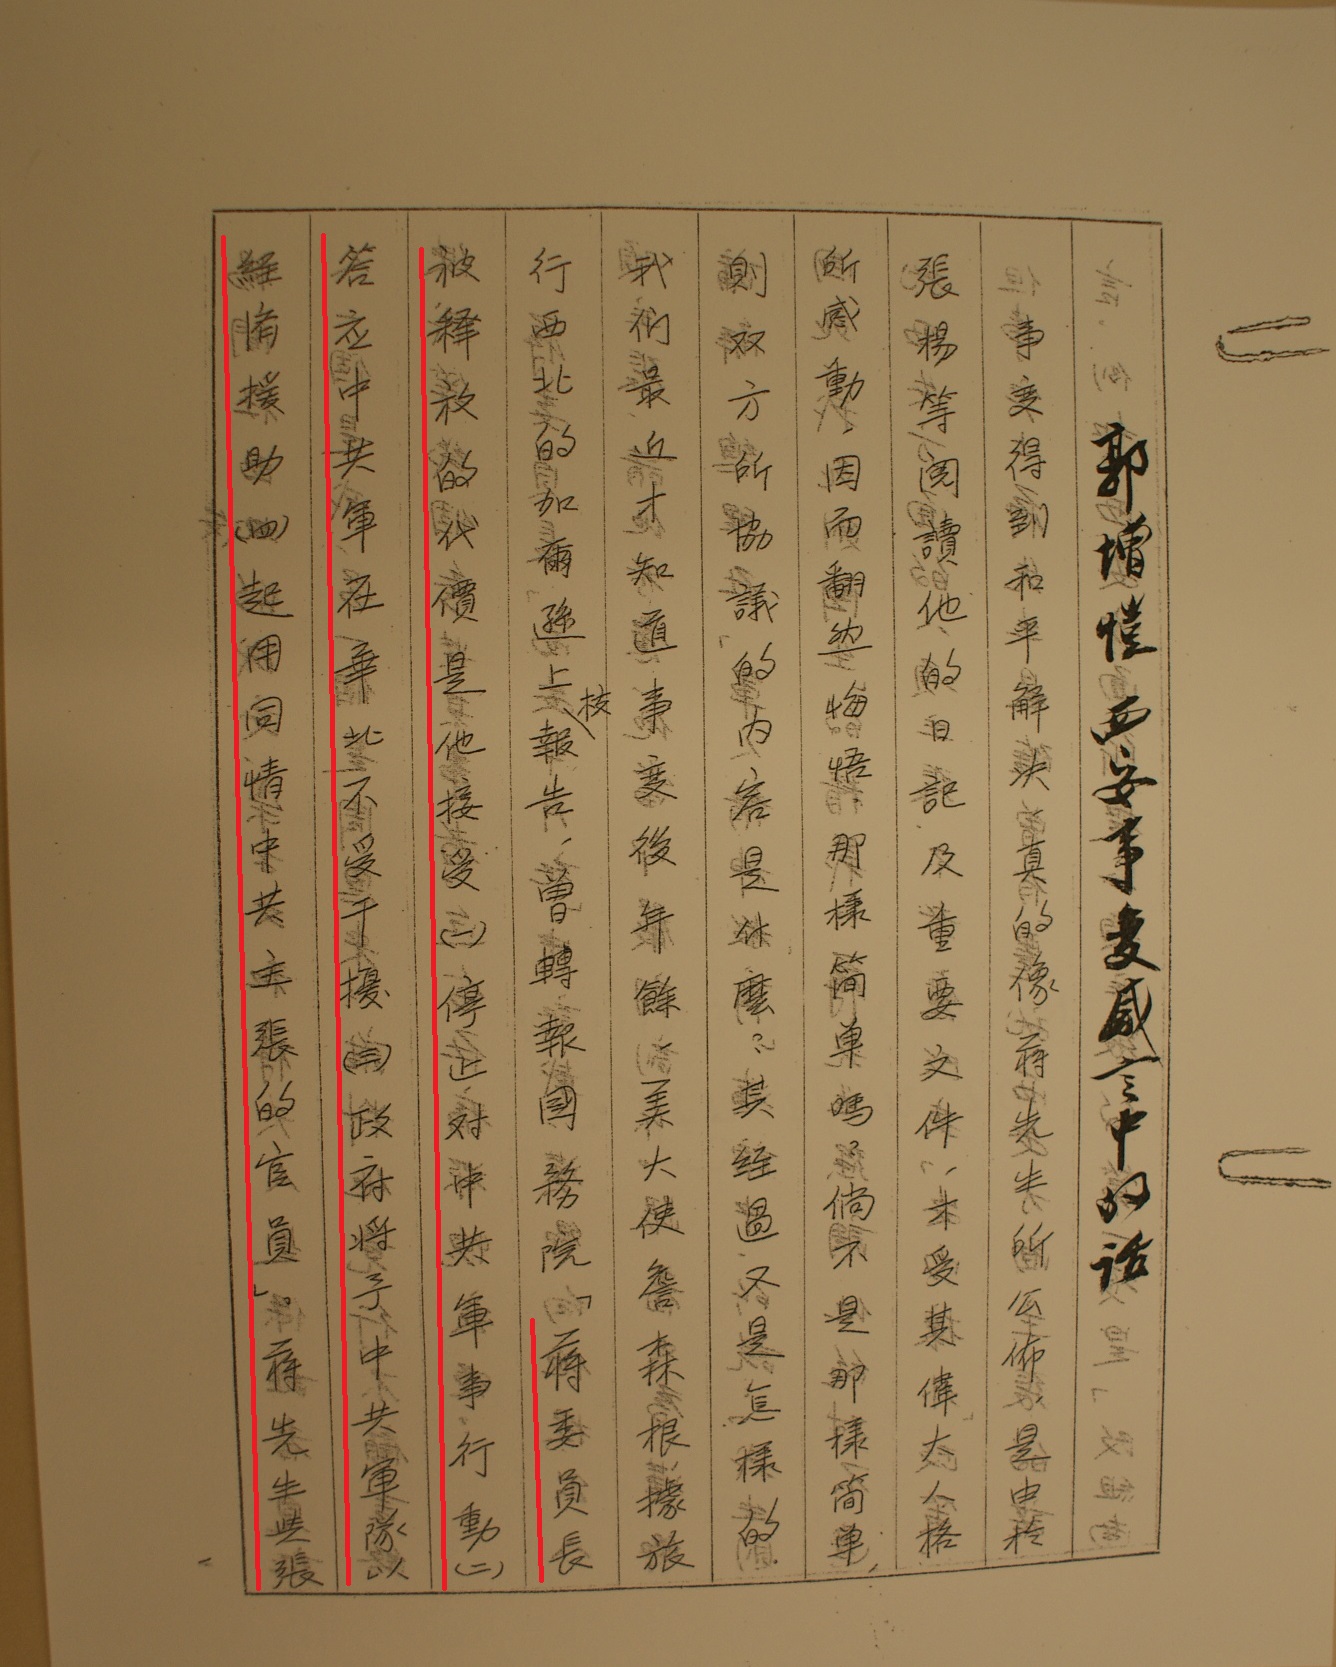 郭增愷西安事变感言中的话
事变得到和平解决真的像蔣先生所公佈是由於
張楊等閱讀他的日記及重要文件、未受其偉大人格
所感動，因而翻然悔悟那樣简单嗎？倘不是那樣简单，
則双方所協議的内容是什麽？其经過又是怎樣的
我們最近才知道事变後年餘美大使詹森根據旅
行西北的加爾遜上校報告，曾轉報國務院「蔣委員長
被释放的代價是他接受(一)停止对中共軍事行動(二)
答应中共軍在華北不受干擾(三)政府将予中共軍隊以
経消援助(四)起用同情中共主張的官員」。蔣先生與張